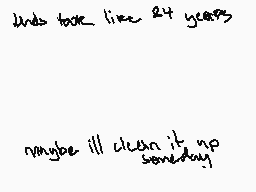 this took like 24 years
maybe ill clean it up
someday